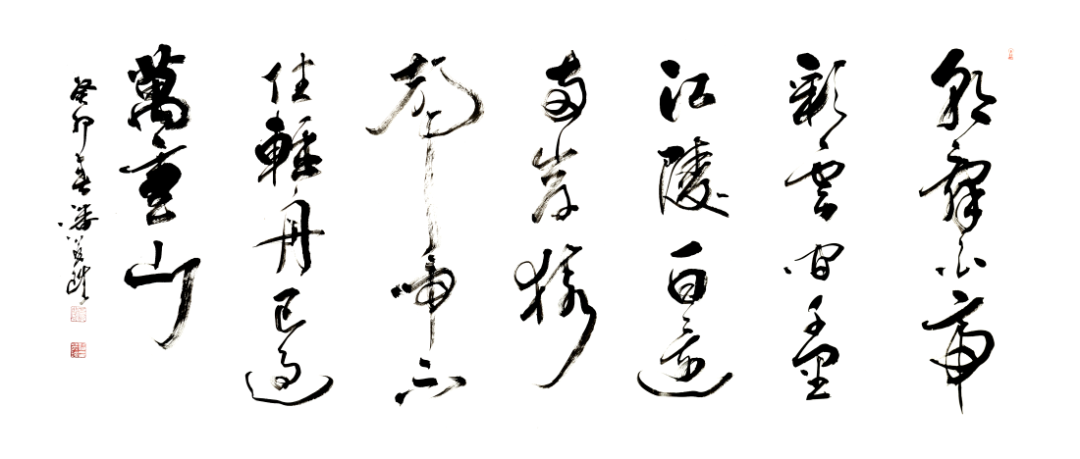 朝辭白帝
彩雲間千里
江陵一日還
兩岸猿
聲啼不
住輕舟已過
萬重山
癸卯春